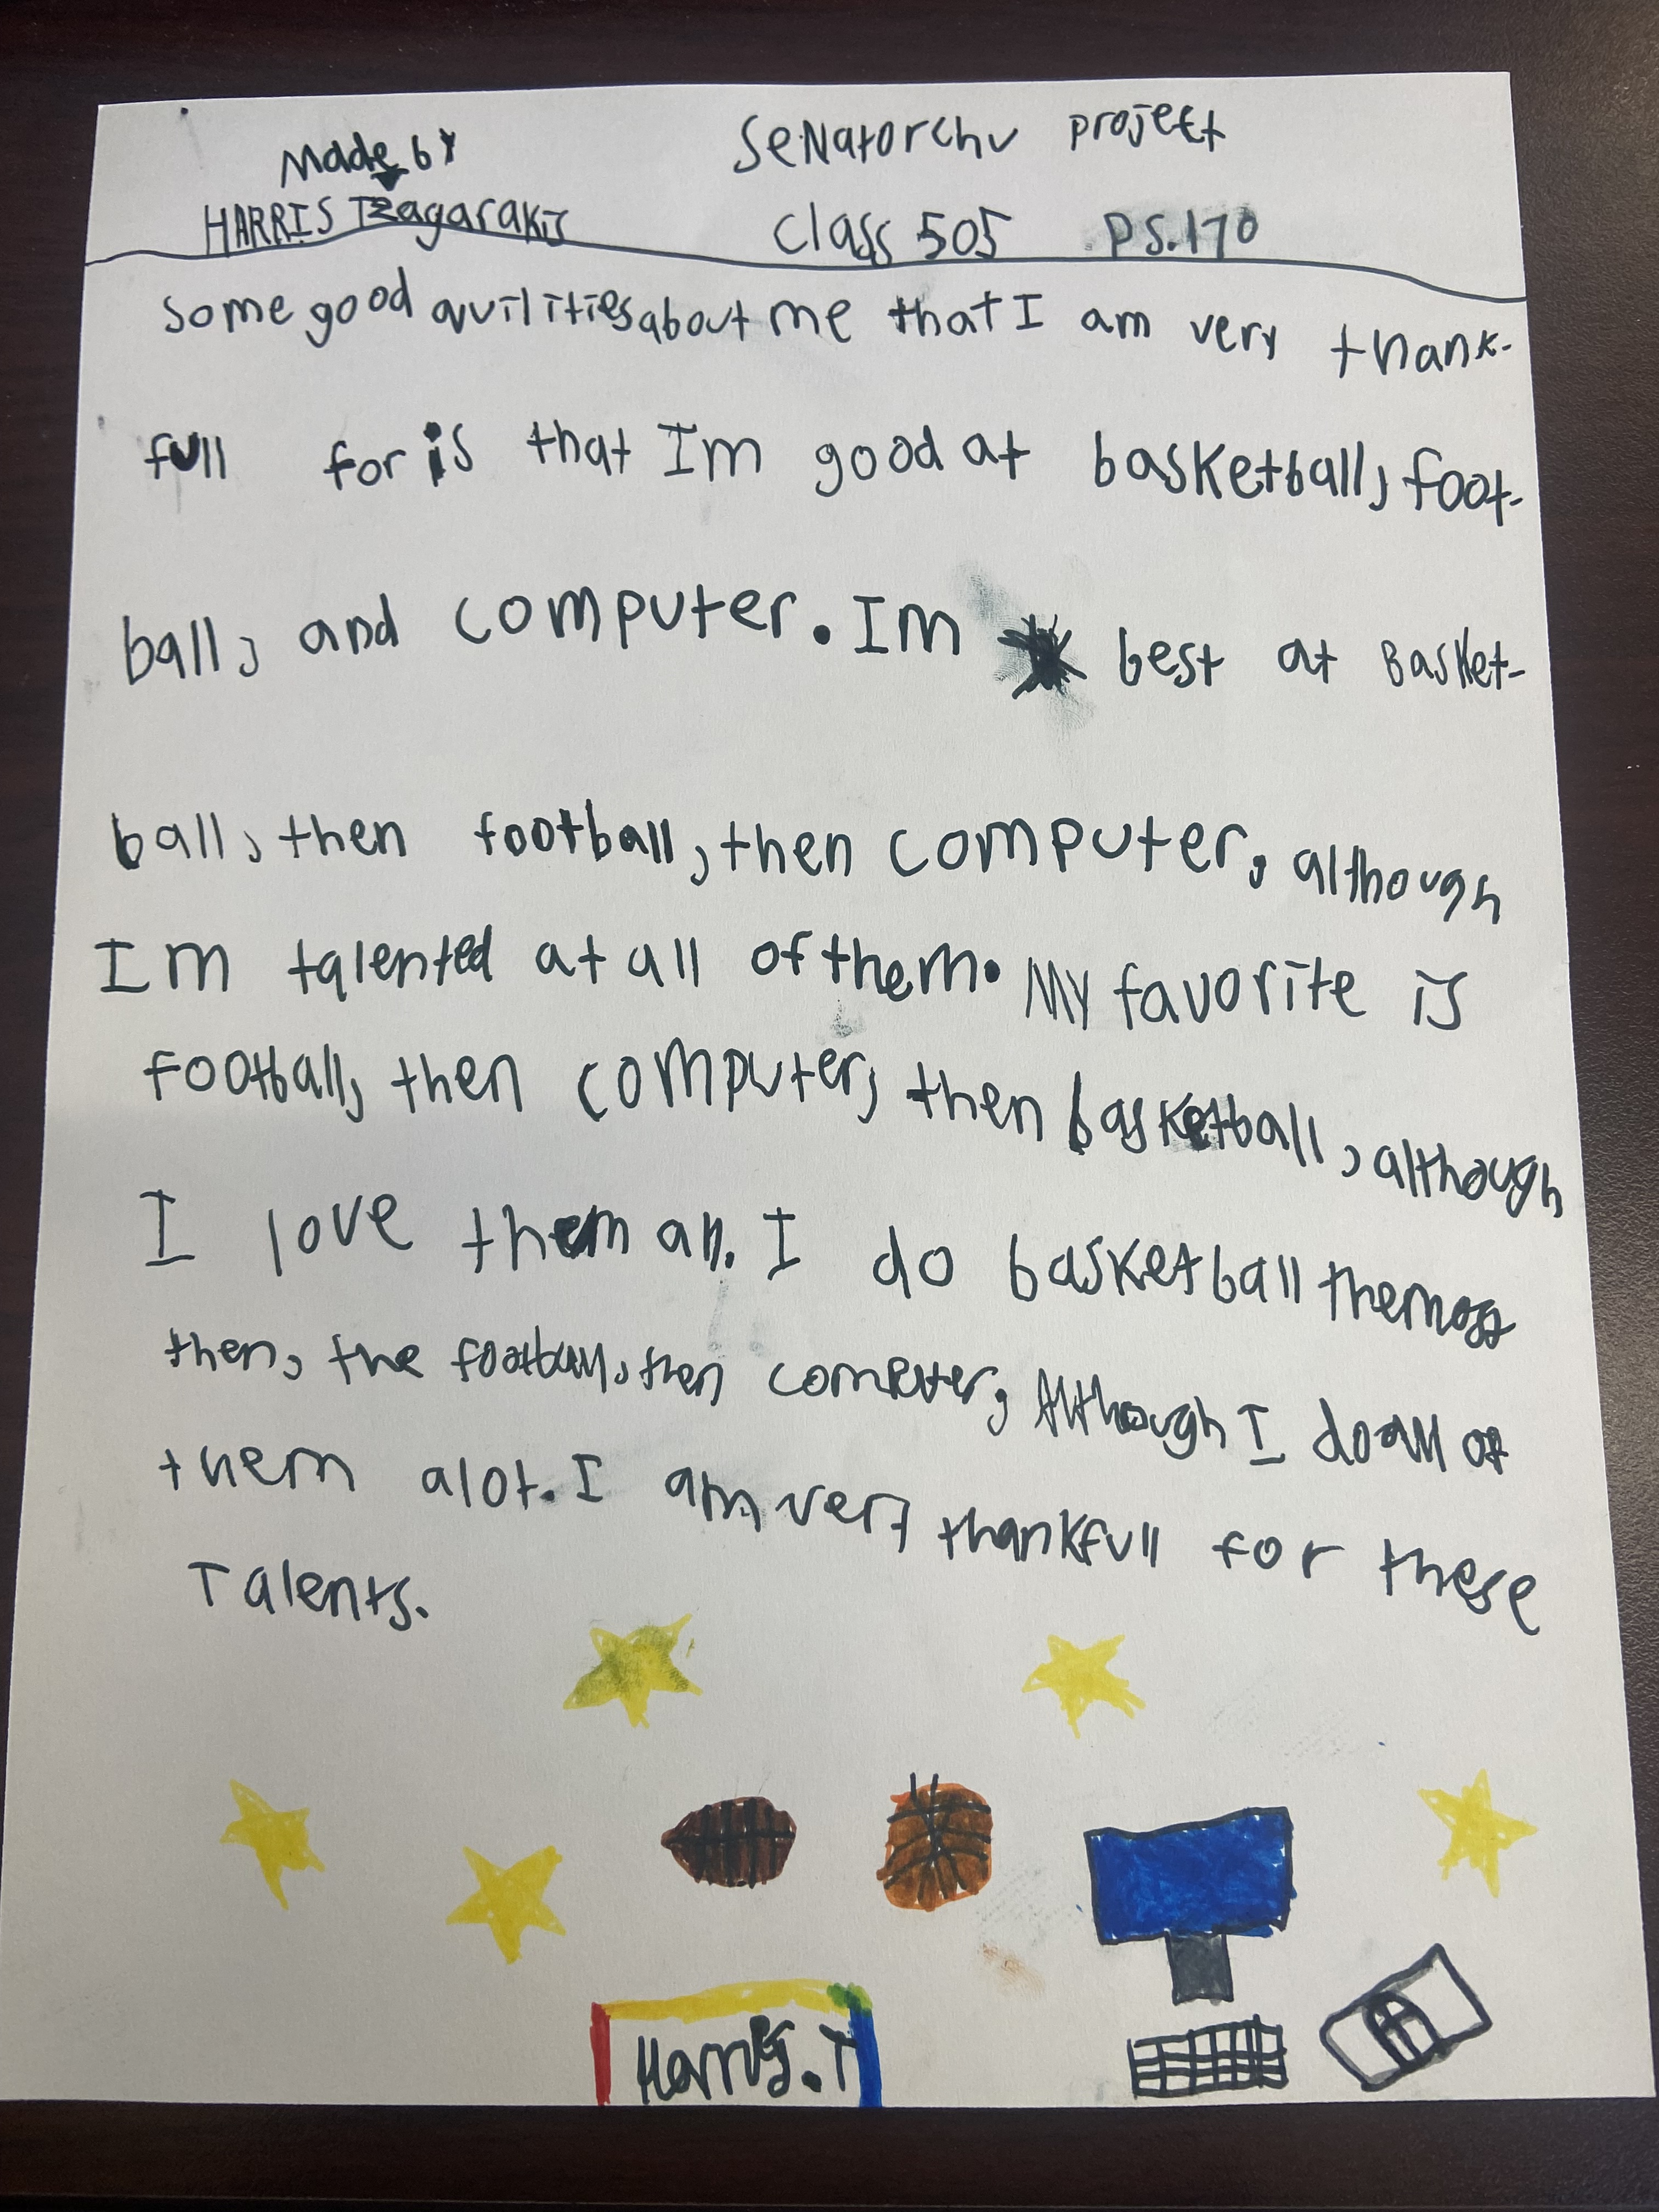 Made by
HARRIS Tzagarakis
SeNatorchu project
class 505 PS.170
some good quilities about me that I am very thank-
full for is that Im good at basketball, foot-
ball, and computer. Im best at Basket-
ball, then football, then computer, although
Im talented at all of them. My favorite is
football, then computer, then basketball, although
I love them all. I do basketball the most
then, the football, then computer, Although I do all of
them alot. I am very thankfull for these
Talents.
Harris.T